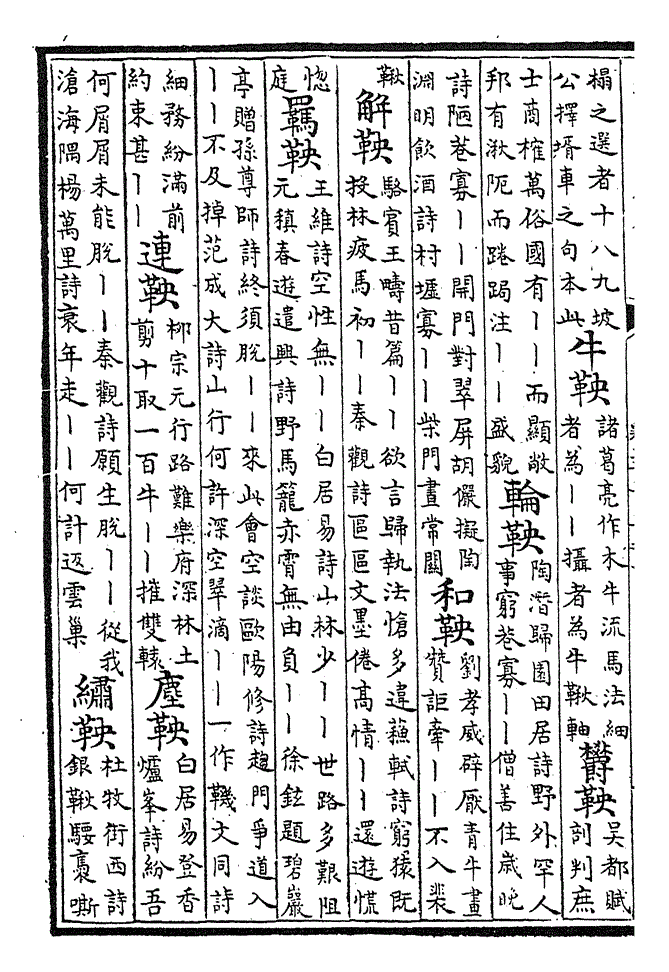 榻之選者十八九坡
公擇壻車之句本此
牛鞅
諸葛亮作木牛流馬法細
者為〡〡攝者為牛鞦軸
欝鞅
吳都賦
剖判庶
士商榷萬俗國有〡〡而顯敞
邦有湫阨而踡跼注〡〡盛貌
輪鞅
陶潛歸園田居詩野外罕人
事窮巷寡〡〡僧善住歲晚
詩陋巷寡〡〡開門對翠屏胡儼擬陶
淵明飲酒詩村墟寡〡〡柴門晝常關
和鞅
劉孝威辟厭青牛畫
贊詎牽〡〡不入裴
鞦
解鞅
駱賓王疇昔篇〡〡欲言歸執法愴多違蘓軾詩窮猿既
投林疲馬初〡〡秦觀詩區區文墨倦高情〡〡還遊慌
惚
庭
羈鞅
王維詩空性無〡〡白居易詩山林少〡〡世路多艱阻
元稹春遊遣興詩野馬籠赤霄無由負〡〡徐鉉題碧巖
亭贈孫尊師詩終須脫〡〡來此會空談歐陽修詩趨門爭道入
〡〡不及掉范成大詩山行何許深空翠滴〡〡一作鞿文同詩
細務紛滿前
約束甚〡〡
連鞅
柳宗元行路難樂府深林土
剪十取一百牛〡〡摧雙轅
塵鞅
白居易登香
爐峯詩紛吾
何屑屑未能脫〡〡秦觀詩願生脫〡〡從我
滄海隅楊萬里詩衰年走〡〡何計返雲巢
繡鞅
杜牧街西詩
銀鞦騕褭嘶